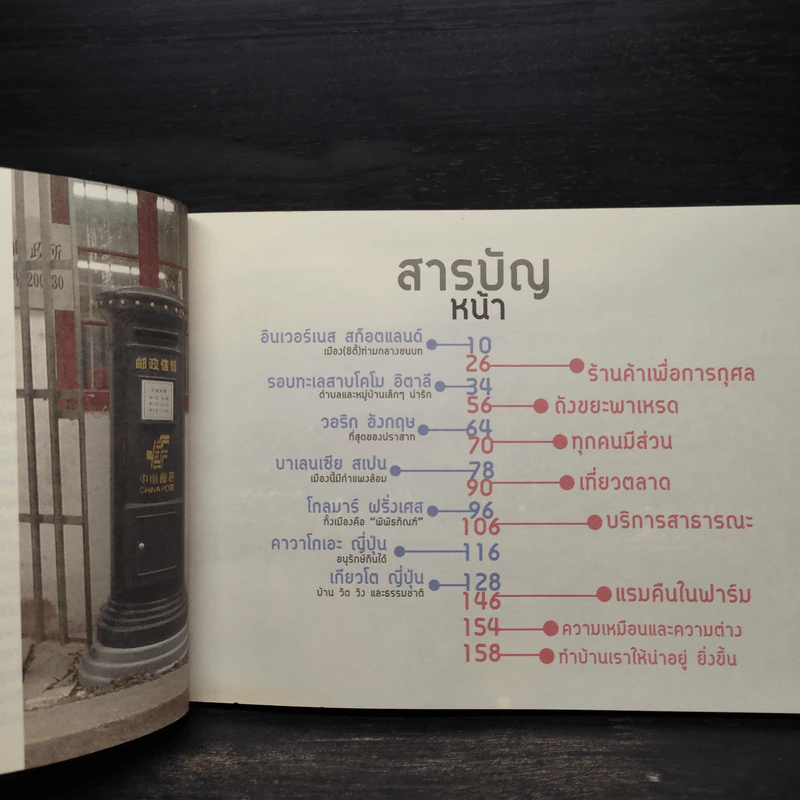 政所
200 30
邮政信筒
中国邮政
CHINA POST
สารบัญ
หน้า
อินเวอร์เนส สก็อตแลนด์ 10
เมือง(ซิตี้)ท่ามกลางชนบท
26 ร้านค้าเพื่อการกุศล
รอบทะเลสาบโคโม อิตาลี 34
ตำบลและหมู่บ้านเล็กๆ น่ารัก
56 ถังขยะพาเหรด
วอริก อังกฤษ 64
ที่สุดของปราสาท
70 ทุกคนมีส่วน
บาเลนเซีย สเปน 78
เมืองนี้มีกำแพงล้อม
90 เที่ยวตลาด
โกลมาร์ ฝรั่งเศส 96
ทั้งเมืองคือ "พิพิธภัณฑ์"
106 บริการสาธารณะ
คาวาโกเอะ ญี่ปุ่น 116
อนุรักษ์กินได้
เกียวโต ญี่ปุ่น 128
บ้าน วัด วัง และธรรมชาติ
146 แรมคืนในฟาร์ม
154 ความเหมือนและความต่าง
158 ทำบ้านเราให้น่าอยู่ ยิ่งขึ้น